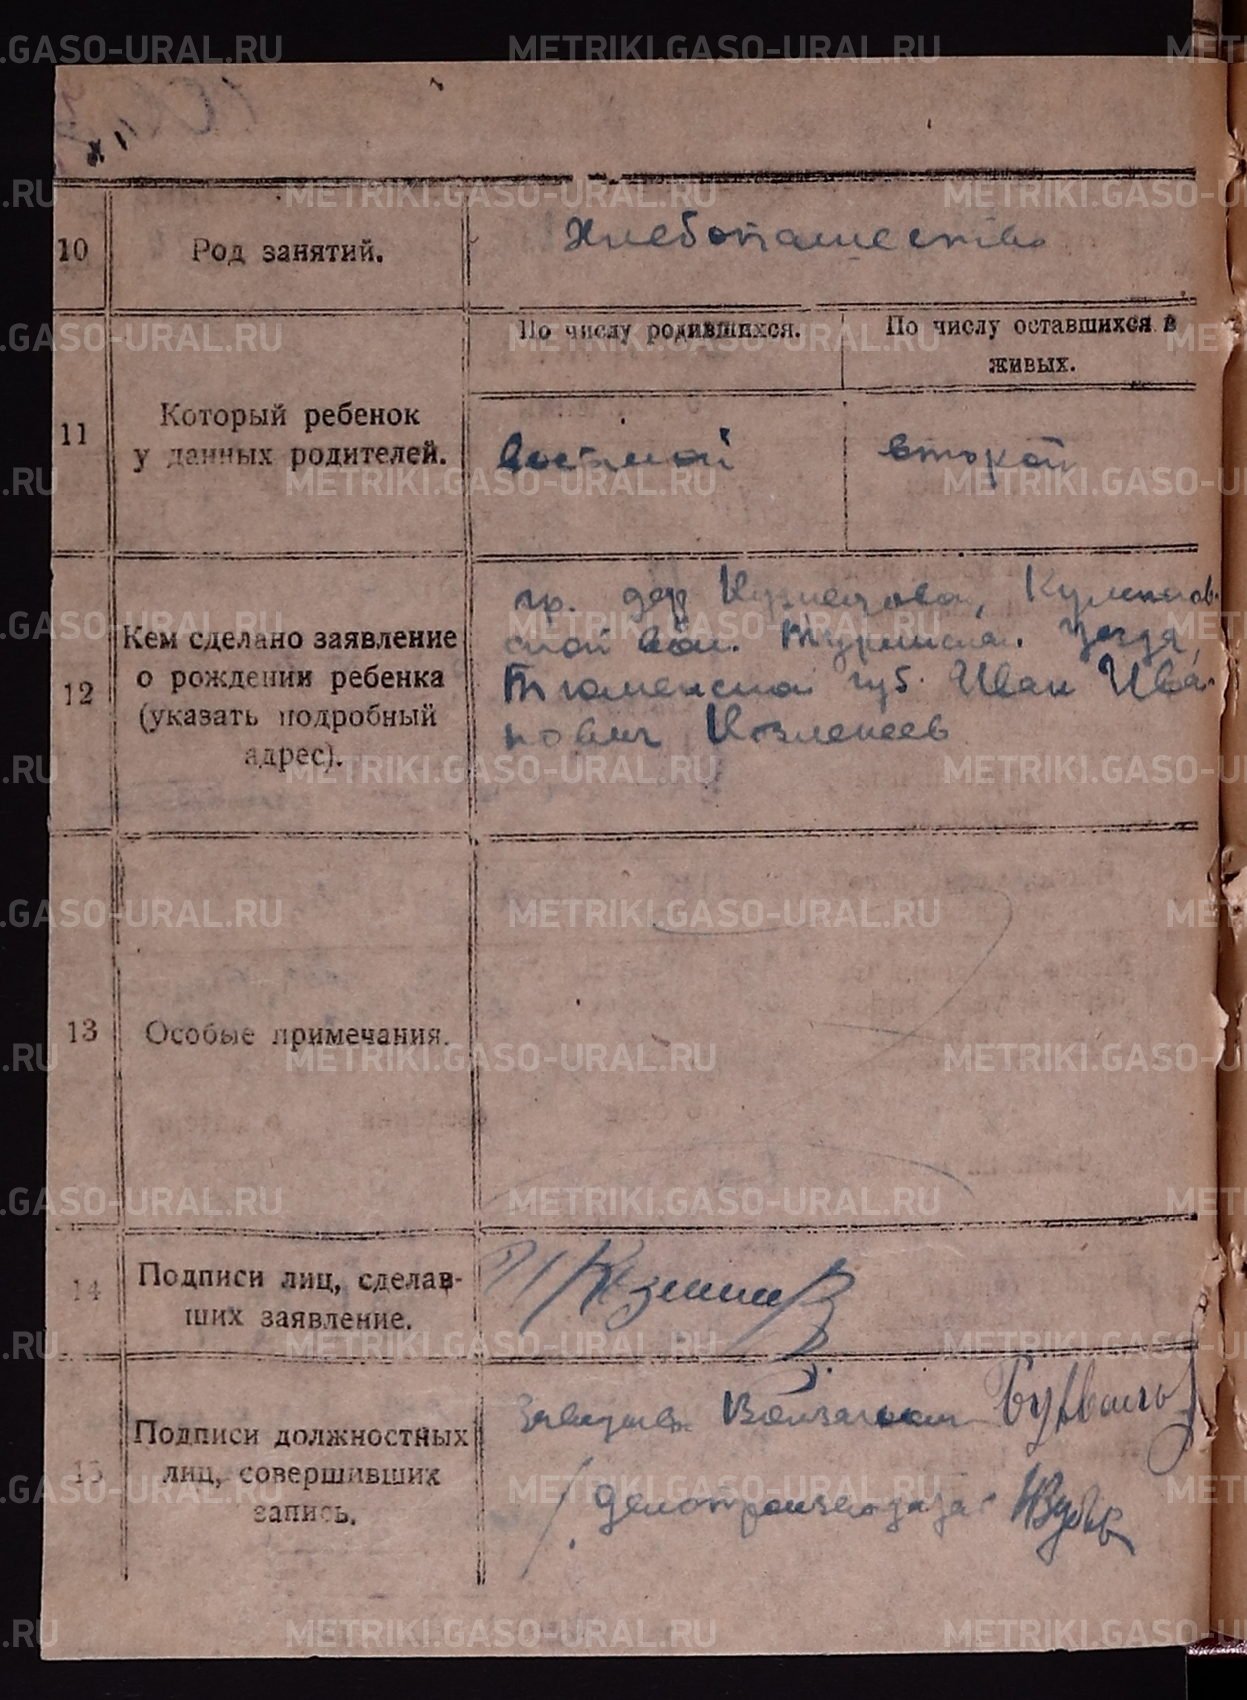 METRIKI.GASO-URAL.RU
10 Род занятий. Хлебопашество
11 Который ребенок
у данных родителей.
По числу родившихся.
По числу оставшихся в
живых.
восьмой второй
12 Кем сделано заявление
о рождении ребенка
(указать подробный
адрес).
гр. дер Кузнецова,
ской вол. Туринска. Уезда,
Тюменской губ. Иван Ива-
нович
13 Особые примечания.
14 Подписи лиц, сделав-
ших заявление.
15 Подписи должностных
лиц, совершивших
запись.
Делопроизвод